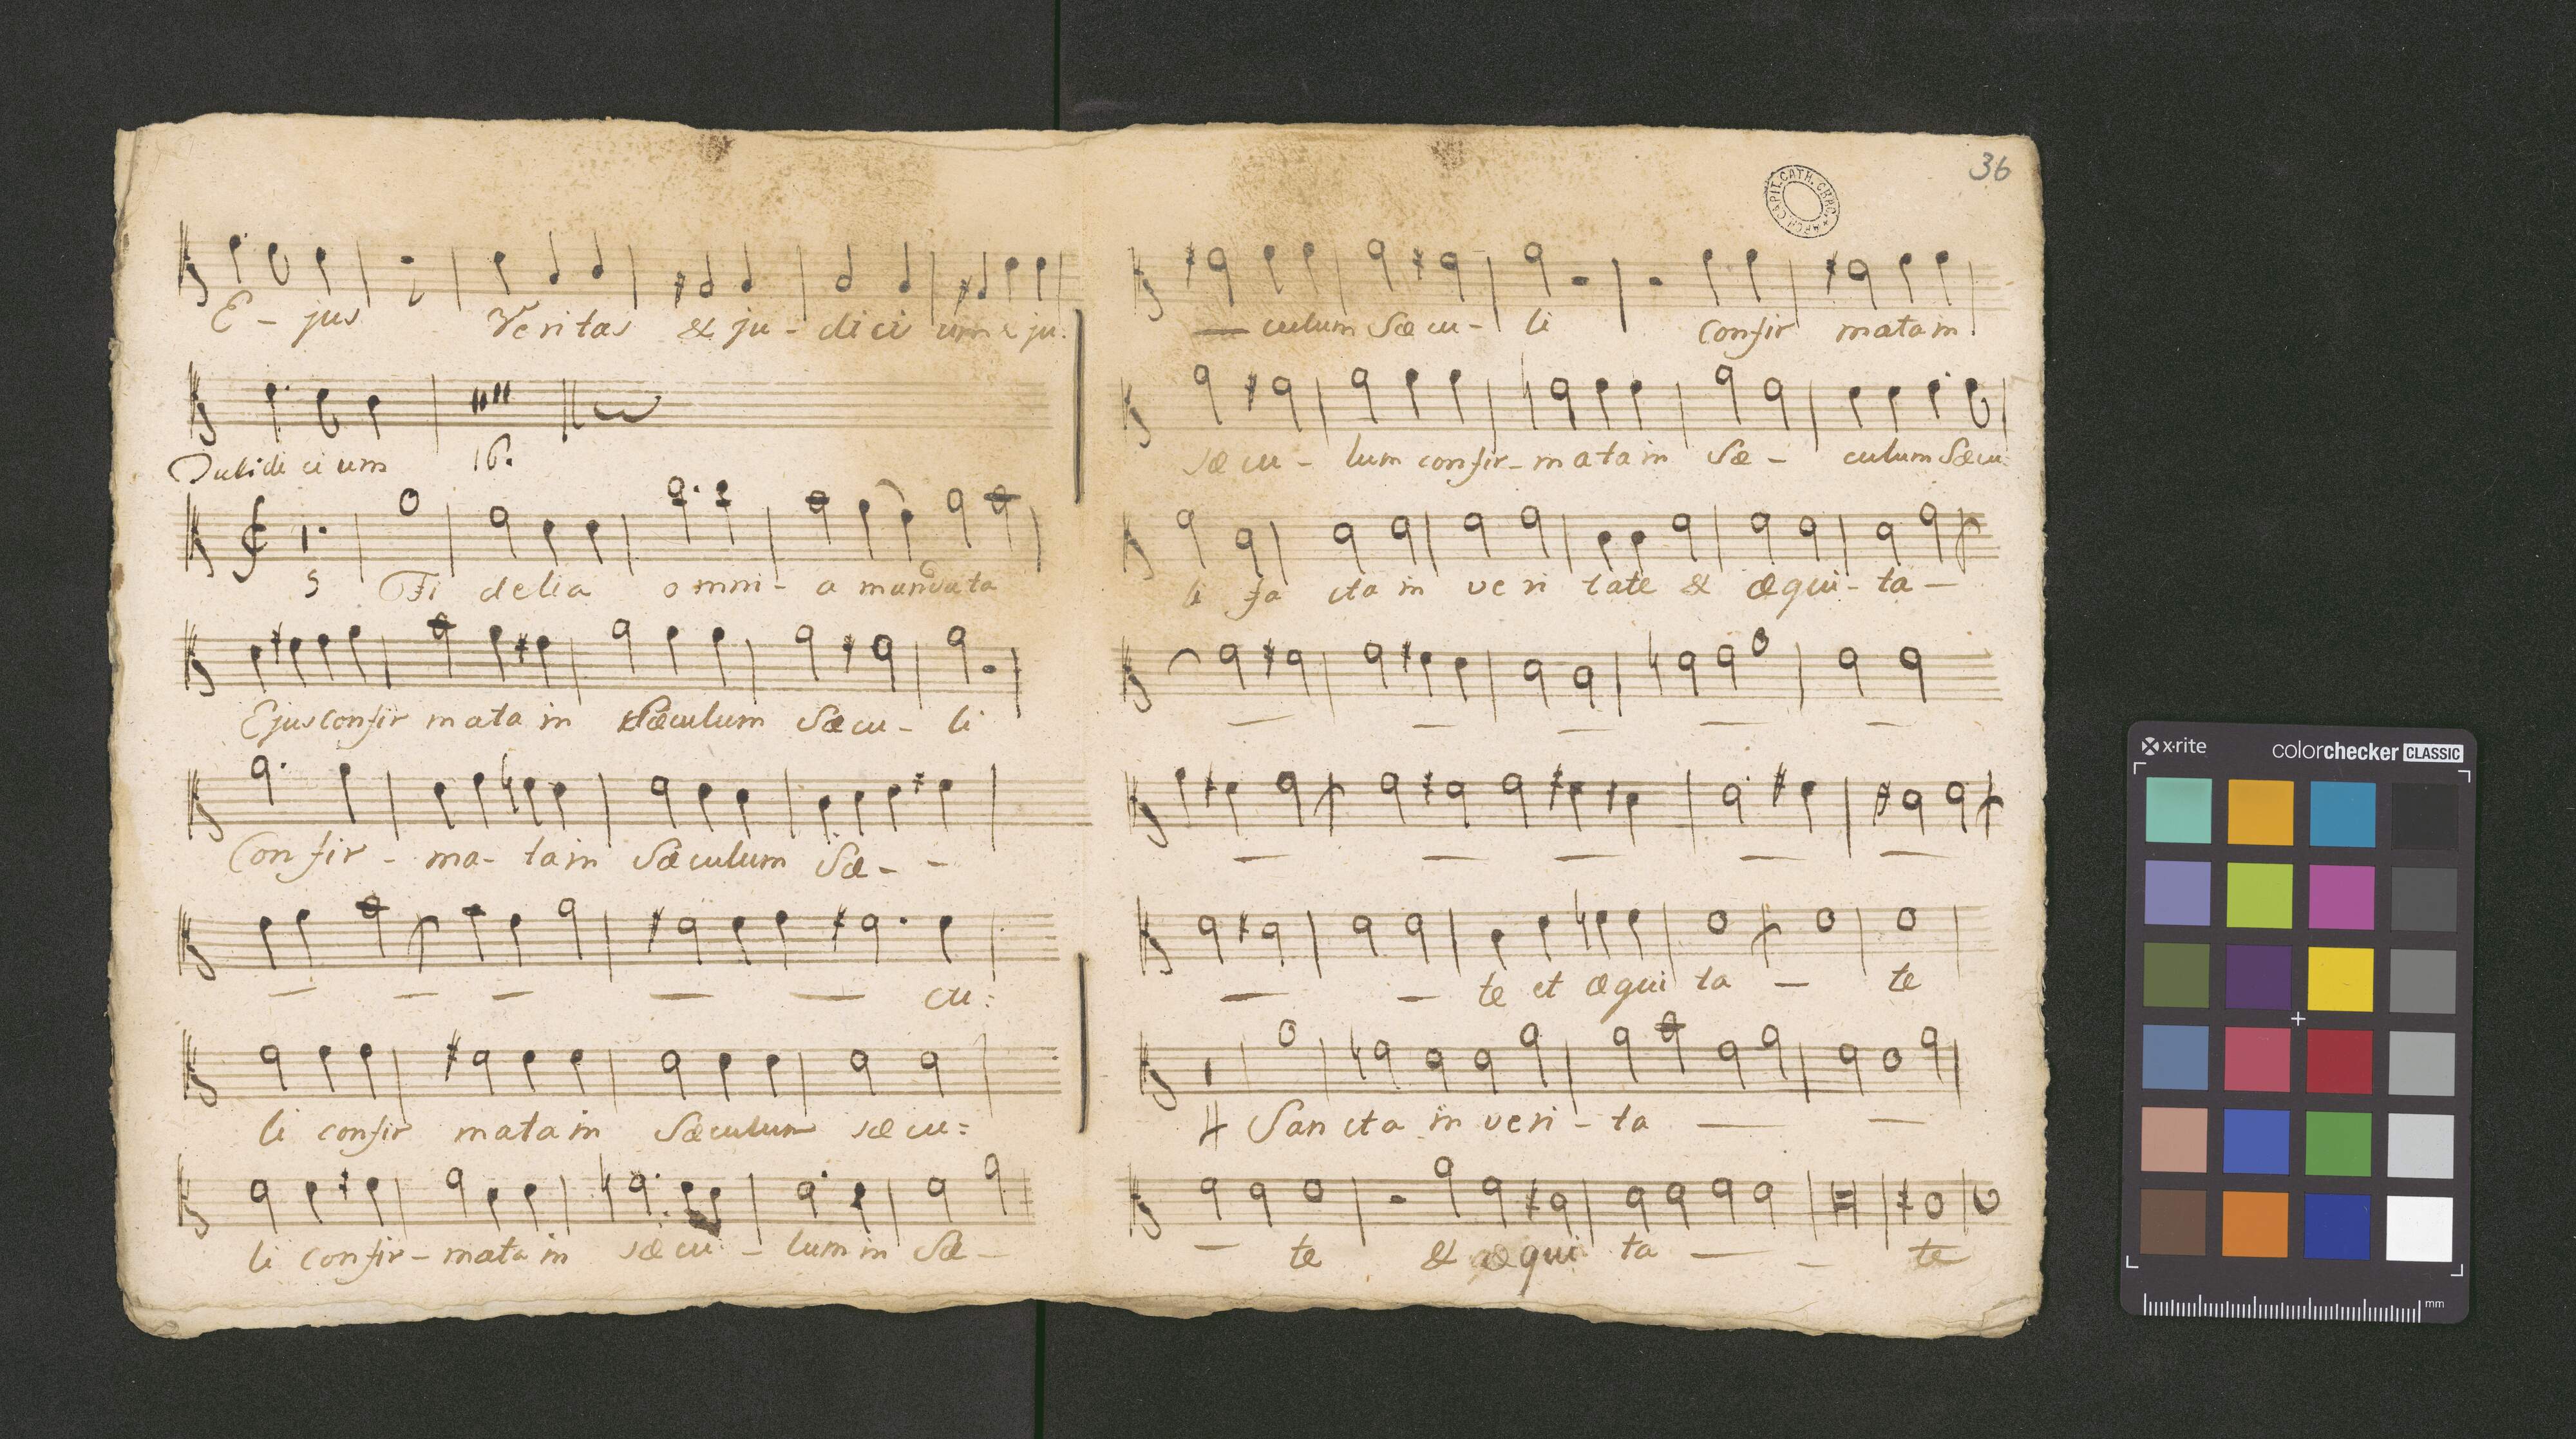 E - jus Veritas & ju - dici um & ju:
dicium 16.
5 Fi delia omni - a mandata
Ejus confir mata in Sæculum Sæcu - li
Confir - ma - ta in Sæculum Sæ - -
— — — — — cu:
li confir mata in Sæculum sæcu:
li confir - mata in sæcu - lum in Sæ -
36
ARCH. CAPIT. CATH.
— culum Sæcu - li Confir mata in
sæcu - lum confir - mata in Sæ - culum Sæcu
li fa cta in veri tate & æqui - ta -
— — — — —
— — — — —
— — te et æqui ta — te
4 Sancta in veri - ta — —
— te & æqui ta — - te
x·rite colorchecker CLASSIC
mm